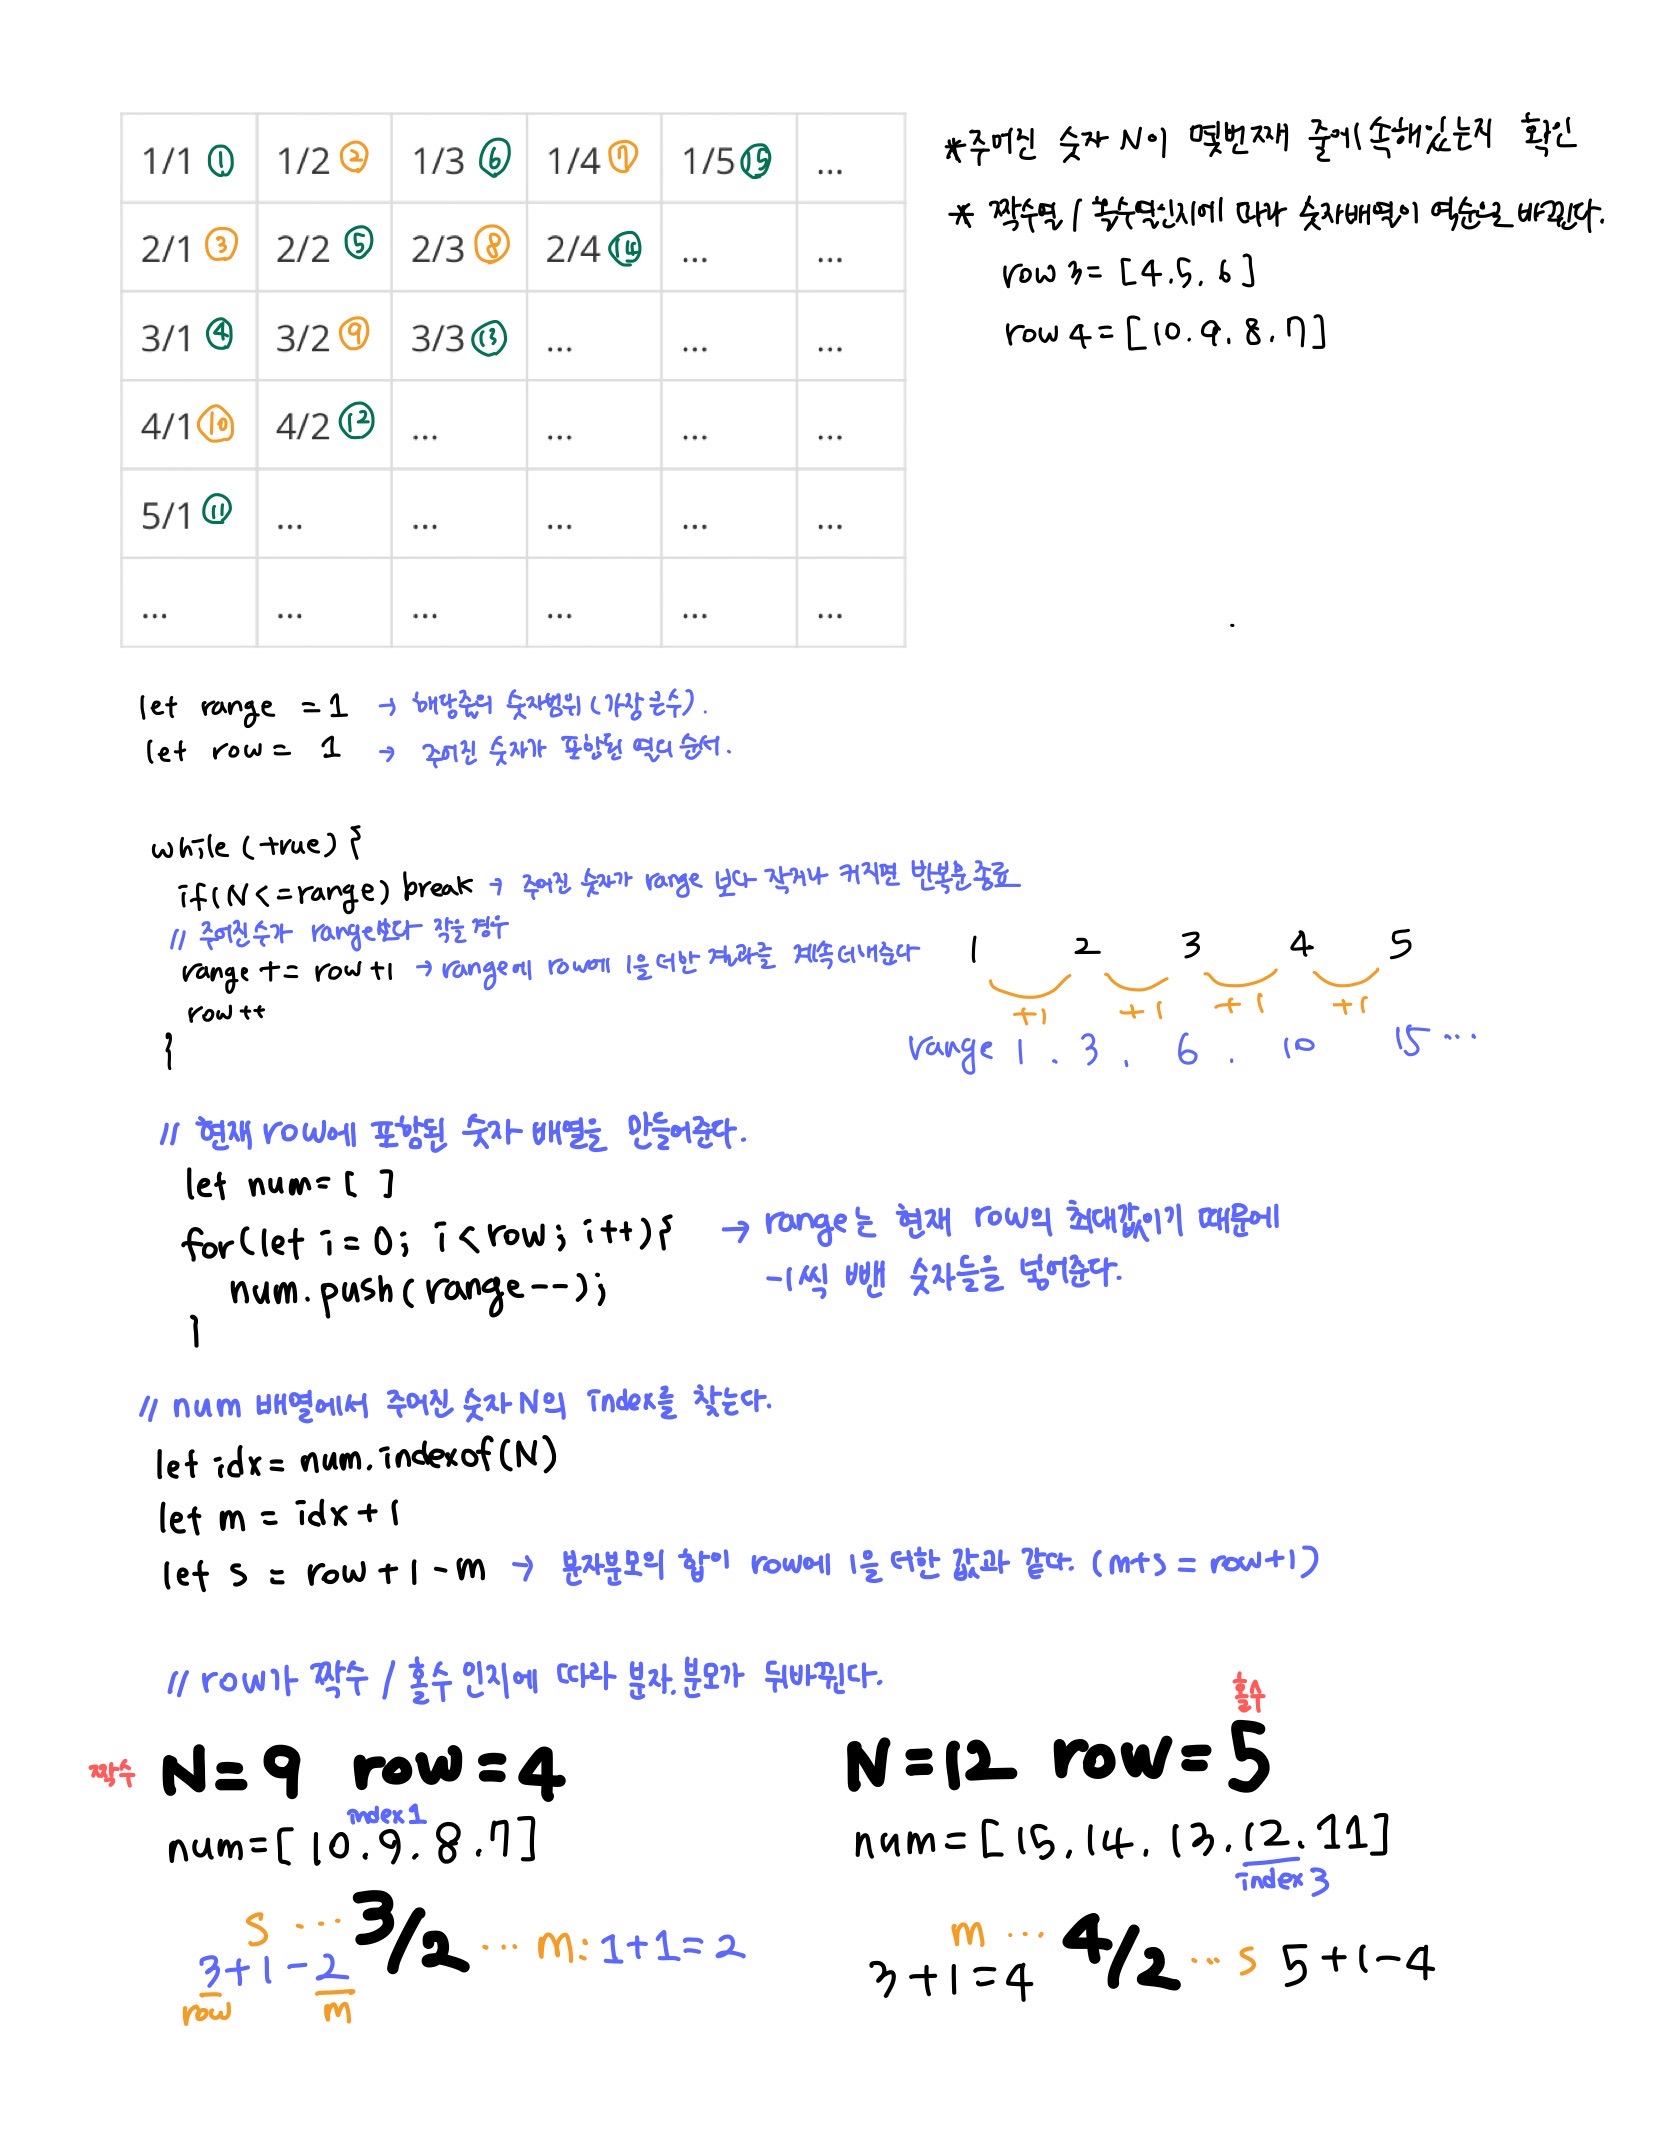 1/1 ① 1/2 ② 1/3 ⑥ 1/4 ⑦ 1/5 ⑮ ...
2/1 ③ 2/2 ⑤ 2/3 ⑧ 2/4 ⑭ ... ...
3/1 ④ 3/2 ⑨ 3/3 ⑬ ... ... ...
4/1 ⑩ 4/2 ⑫ ... ... ... ...
5/1 ⑪ ... ... ... ... ...
... ... ... ... ... ...
*주어진 숫자 N이 몇번째 줄에 속해있는지 확인
* 짝수열 / 홀수열인지에 따라 숫자배열이 역순으로 바뀐다.
row 3 = [4.5.6]
row 4 = [10.9.8.7]
let range = 1 → 해당줄의 숫자범위 (가장 큰수).
let row = 1 → 주어진 숫자가 포함된 열의 순서.
while (true) {
if(N <= range) break → 주어진 숫자가 range 보다 작거나 커지면 반복문 종료
// 주어진수가 range보다 작을 경우
range += row+1 → range에 row에 1을 더한 결과를 계속 더해준다
row ++
}
1 2 3 4 5
+1 +1 +1 +1
range 1 . 3 , 6 . 10 15 ...
// 현재 row에 포함된 숫자 배열을 만들어준다.
let num = [ ]
for(let i = 0; i < row; i++){ → range는 현재 row의 최대값이기 때문에
num.push(range--); -1씩 뺀 숫자들을 넣어준다.
}
// num 배열에서 주어진 숫자 N의 index를 찾는다.
let idx = num.indexof(N)
let m = idx + 1
let s = row + 1 - m → 분자분모의 합이 row에 1을 더한 값과 같다. (m+s = row+1)
// row가 짝수 / 홀수 인지에 따라 분자.분모가 뒤바뀐다.
짝수 N=9 row=4
index 1
num=[10.9.8.7]
s ... 3/2 ... m: 1+1=2
3+1-2
row m
홀수
N=12 row=5
num=[15,14,13,12.11]
index 3
m ... 4/2 ... s 5+1-4
3+1=4